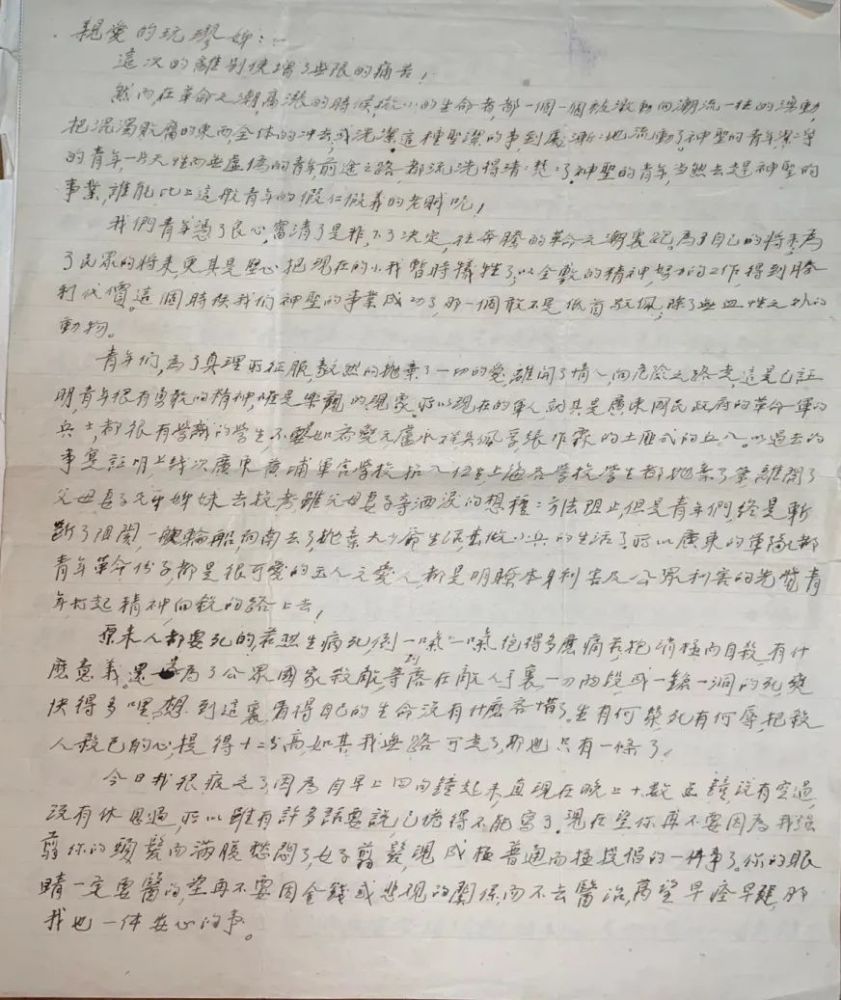 親愛的玩璆姊：
這次的離別使增了無限的痛苦！
然而在革命之潮高漲的時候，微小的生命者，都一個一個被激動而潮流一柱的浮動，
把混濁腐的東西全体的冲去，或洗潔這種聖潔的事到處漸漸地流動了神聖的青年潔净
的青年一片天性而無虛偽的青年前途之路，都流洗得清清楚楚了。神聖的青年，当然去趕神聖的
事業，誰能比上這般青年的假仁假義的老賊呢！
我們青年憑了良心，審清了是非，下了決定，往奔騰的革命之潮裏，為了自己的將來，為
了民眾的將來，更其是堅心把現在的小我暫時犧牲了，以全數的精神，努力的工作，得到勝
利代價。這個時候我们神聖的事業成功了，那一個敢不是低首敬佩，除了無血性之外的
動物。
青年们，為了真理所征服，毅然的拋棄了一切的愛，離開了情人，向危險之路走，這是已証
明，青年很有勇敢的精神，唯是樂觀的現象，所以現在的軍人就其是廣東國民政府的革命軍的
兵士，都很有學識的學生，不如吳佩孚張作霖的土匪式的兵人。以過去的
事實証明上幾次廣東黃埔軍官學校招入伍生，上海各學校學生都拋棄了筆離開了
父母妻子兄弟姊妹去投考，雖父母妻子等洒淚的想種種方法阻止，但是青年們，終是斬
斷了阻関，一艘輪船向南去了，拋棄大少爺生活，去做小兵的生活了，所以廣東的軍隊，都
青年革命份子，都是很可愛的，都是明瞭本身利害及公眾利害的先覺青
年，打起精神向殺的路上去！
原来人都要死的，若然生病死倒一喊一喊，抱得多麽痛苦，抱消極而自殺，有什
麽意義。還是為了公眾國家殺敵等落到在敵人手裏，一刀兩段或一鎗一洞的死，纔
快得多哩，想到這裏看得自己的生命沒有什麽吝惜了，生有何榮死有何辱，把殺
人殺己的心，提得十二分高，如其我無路可走了，那也只有一條了。
今日我很疲乏了，因為自早上四句鐘起来，直現在晚上十數点鐘，沒有空過，
沒有休息過，所以雖有許多話要說，已倦得不能寫了。現在望你再不要因為我強
剪你的頭髮而滿腹愁悶了，女子剪髮，現成極普通而極提倡的一件事了。你的眼
睛一定要醫的，望再不要因金錢或悲观的關係，而不去醫治，萬望早痊早愈，那
我也一件安心的事。